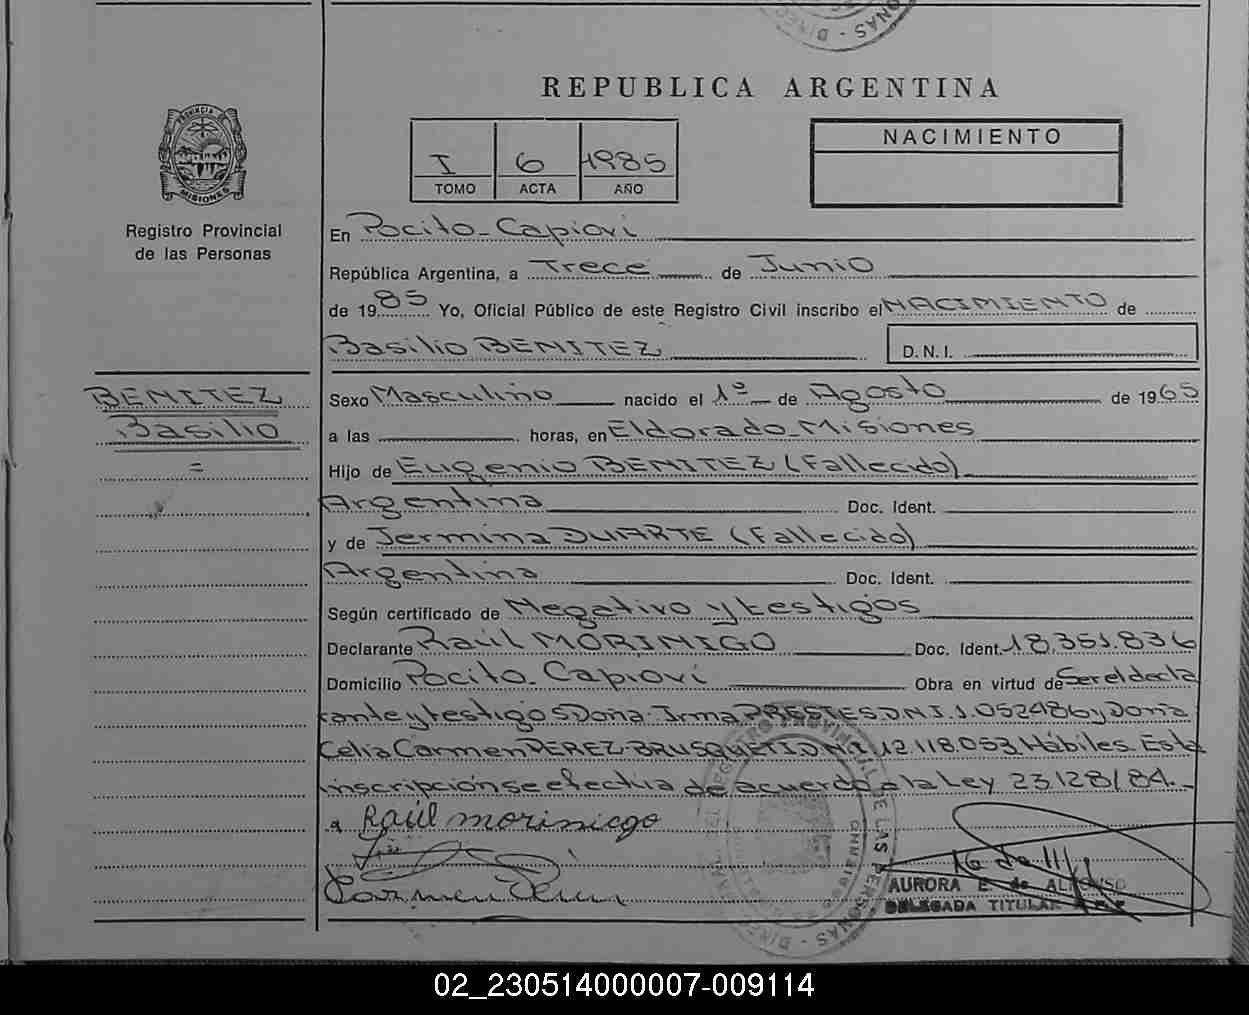 REPUBLICA ARGENTINA
PROVINCIA DE
MISIONES
Registro Provincial
de las Personas
I 6 1985
TOMO ACTA AÑO
NACIMIENTO
En Pocito-Capiovi
República Argentina, a Trece de Junio
de 1985 Yo, Oficial Público de este Registro Civil inscribo el NACIMIENTO de
Basilio BENITEZ D.N.I.
BENITEZ
Basilio
=
Sexo Masculino nacido el 1º de Agosto de 1965
a las horas, en Eldorado-Misiones
Hijo de Eugenio BENITEZ (Fallecido)
Argentina Doc. Ident.
y de Jermina DUARTE (Fallecido)
Argentina Doc. Ident.
Según certificado de Negativo y testigos
Declarante Raúl MORINIGO Doc. Ident. 18.351.836
Domicilio Pocito-Capiovi Obra en virtud de Ser el decla
rante y testigos Doña Irma PRESTES D.N.I. 1.052486 y Doña
Celia Carmen PEREZ BRUSQUETI D.N.I. 12.118.053 Hábiles. Esta
inscripción se efectúa de acuerdo a la Ley 23.128/84.-
a Raúl moriniego
Carmen
AURORA E. de ALFONSO
DELEGADA TITULAR
02_230514000007-009114